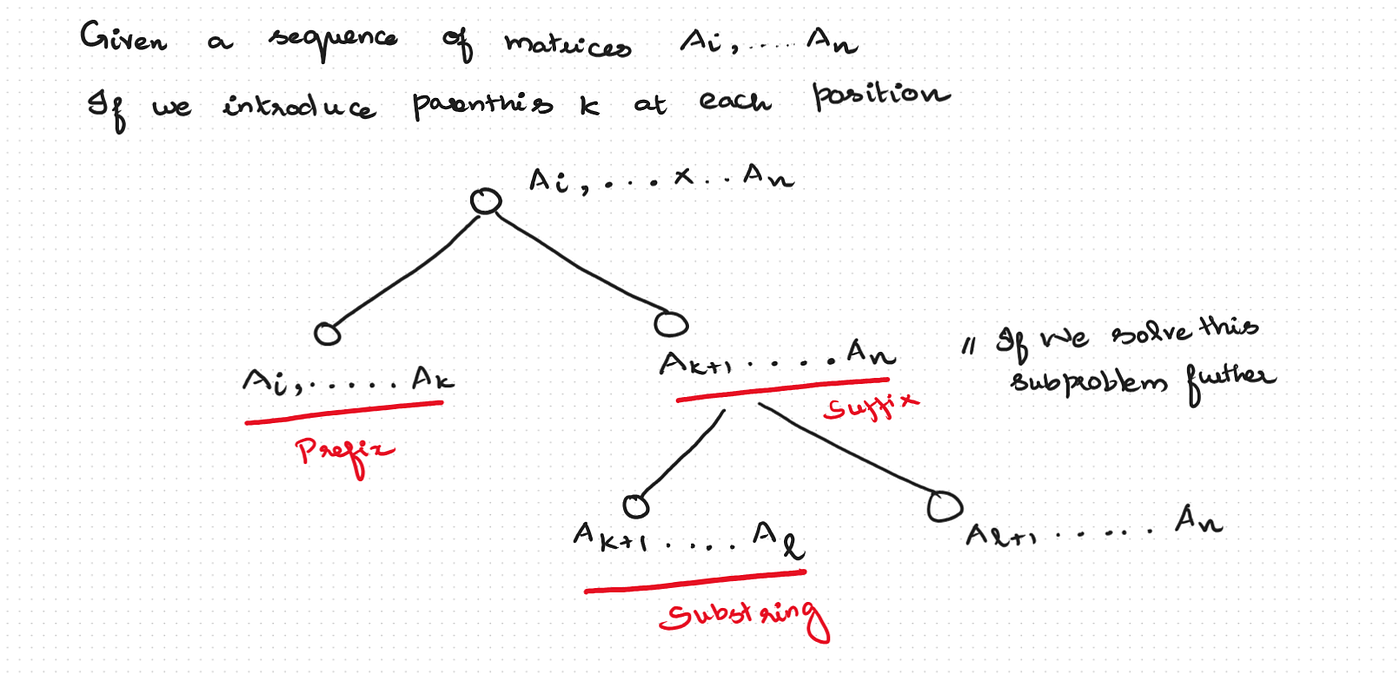 Given a sequence of matrices Ai, .... An
If we introduce parenthis k at each position
Ai, ... x .. An
Ai, ..... Ak
Prefix
Ak+1 .... An
Suffix
// If we solve this
subproblem further
Ak+1 .... Al
Substring
Al+1 ..... An